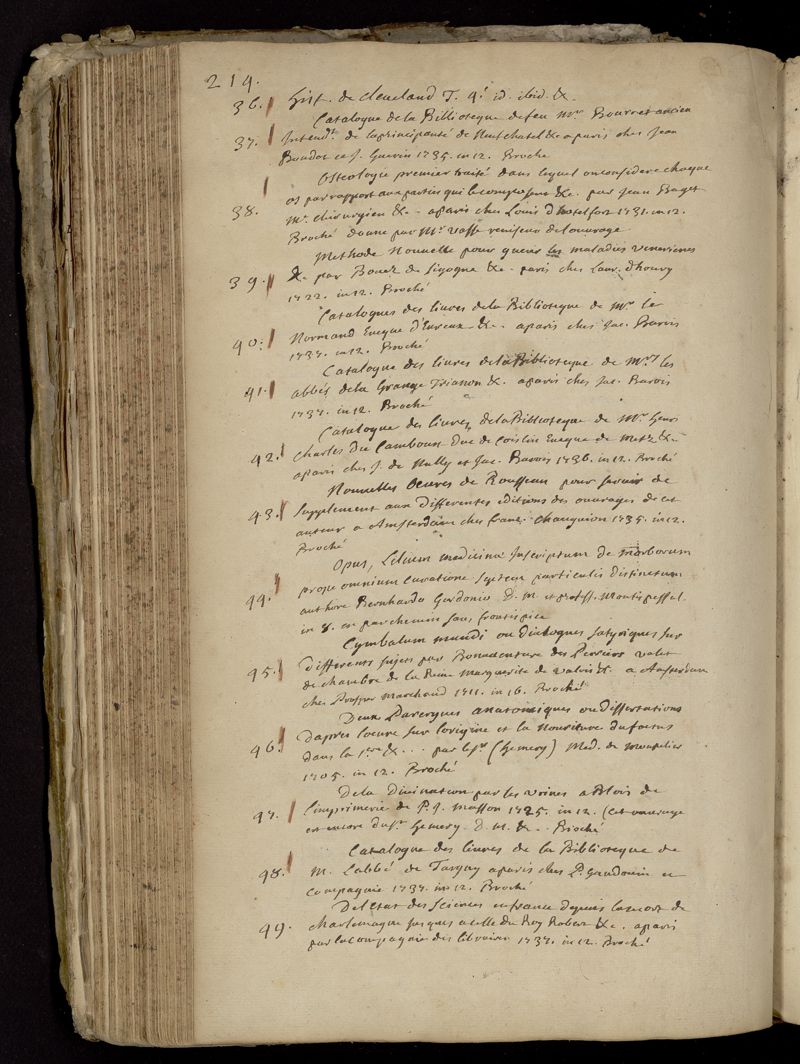 214.
36. Hist. de Cleveland T. 4e id. ibid. &c.
Catalogue de la Biblioteque de feu Mr. Bourret ancien
37. Intendt. de la principauté de Neufchatel &c a paris chez Jean
Boudot et J. Guerin 1735. in 12. Broché
Osteologie premier traité dans lequel on considere chaque
os par rapport aux parties qui le composent &c. par Jean Baget
38. Me. chirurgien &c. a paris chez Louis d'hotelfort 1731. in 12.
Broché donné par Mr. Vasse reviseur de l'ouvrage
Methode Nouvelle pour guerir les maladies veneriennes
39. &c. par Bouez de Sigogne &c. paris chez Laur. d'houry
1722. in 12. Broché
Catalogues des livres de la Biblioteque de Mr. le
40. Normand Eveque d'Evreux &c. a paris chez Jac. Barois
1737. in 12. Broché
Catalogue des livres de la Biblioteque de Mrs. les
41. abbés de la Grange Trianon &c. a paris chez Jac. Barois
1737. in 12. Broché
Catalogue des livres de la Biblioteque de Mr. Henri
42. Charles du Cambout Duc de Coislin Eveque de Metz &c.
a paris chez J. de Nully et Jac. Barois 1736. in 12. Broché
Nouvelles Oeuvres de Rousseau pour servir de
43. supplement aux differentes editions des ouvrages de cet
auteur a Amsterdam chez franc. Changuion 1735. in 12.
Broché
Opus, Lilium medicinæ Inscriptum de morborum
44. prope omnium curatione septem particulis distinctum
authore Bernhardo Gordonio D. M. et profess. Montispessul.
in 8. en parchemin sans frontispice
Cymbalum mundi ou dialogues satyriques sur
45. differents sujets par Bonaventure des Perriers valet
de chambre de la Reine Marguerite de Valois &c. a Amsterdam
chez Prosper Marchand 1711. in 16. Broché
Deux Parergues anatomiques ou dissertations
46. d'apres l'oeuvre sur l'origine et la Nouriture du foetus
dans la 1ere &c... par le Sr. (Hemery) Med. de Montpelier
1705. in 12. Broché
De la Divination par les urines a Blois de
47. l'imprimerie de P. J. Masson 1725. in 12. (cet ouvrage
est encore du Sr. Hemery D. M. &c. Broché
Catalogue des livres de la Biblioteque de
48. M. L'abbé de Targny a paris chez P. Gandouin et
compagnie 1737. in 12. Broché
De l'Etat des Sciences en france depuis la mort de
49. charlemagne jusques a celle du Roy Robert &c. a paris
par la compagnie des libraires 1737. in 12. Broché